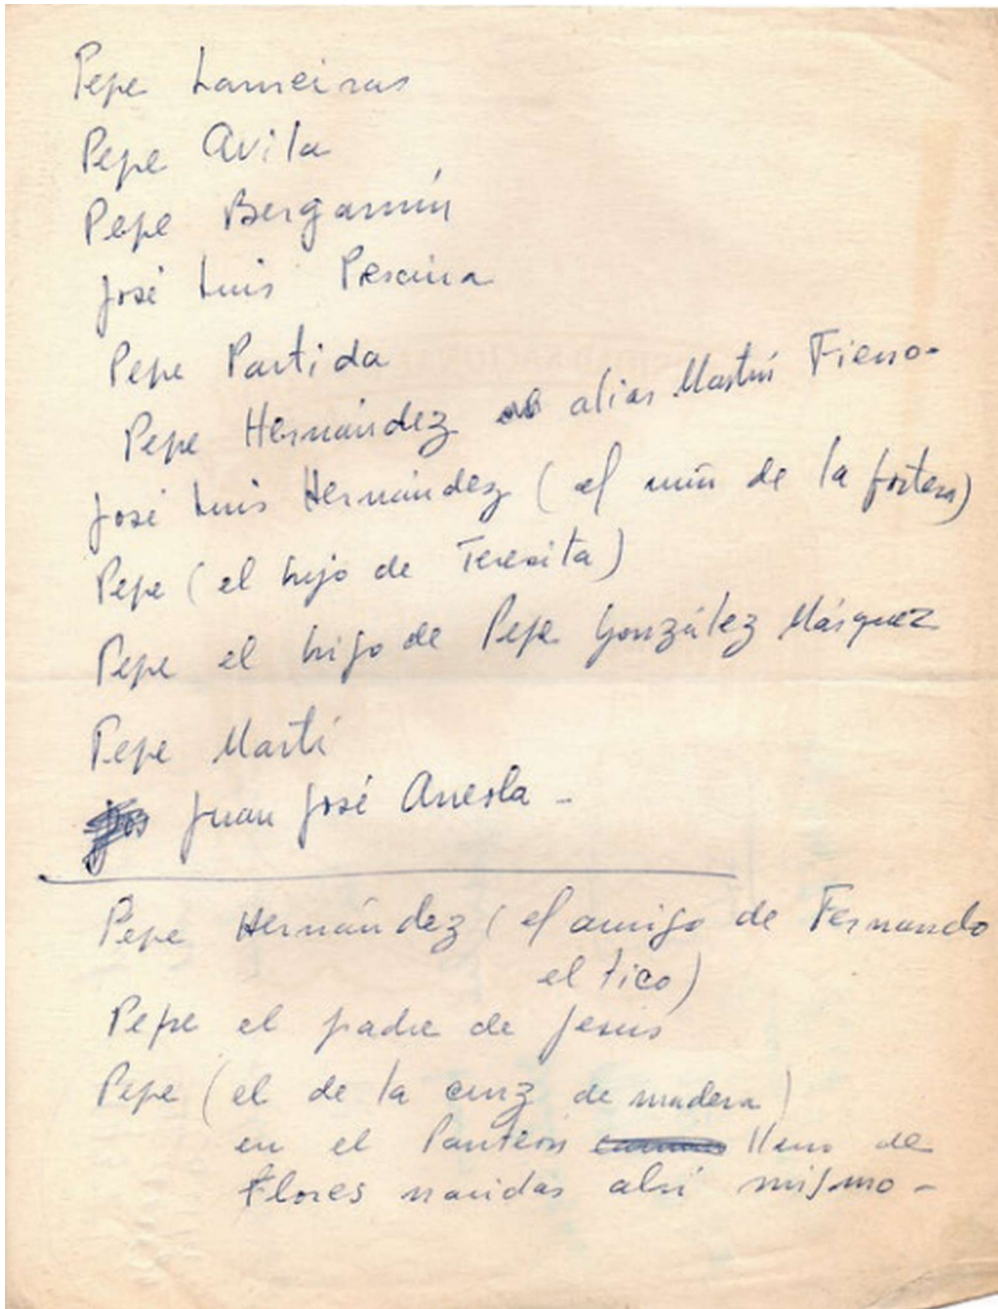 Pepe Lameiras
Pepe Avila
Pepe Bergamín
José Luis Pescina
Pepe Partida
Pepe Hernández alias Martín Fierro-
José Luis Hernández (el de la
Pepe (el hijo de Teresita)
Pepe el hijo de Pepe González Márquez
Pepe Martí
Juan José Arreola -
Pepe Hernández (el amigo de Fernando
el tico)
Pepe el padre de Jesús
Pepe (el de la cruz de madera)
en el Panteón lleno de
flores nacidas ahí mismo -